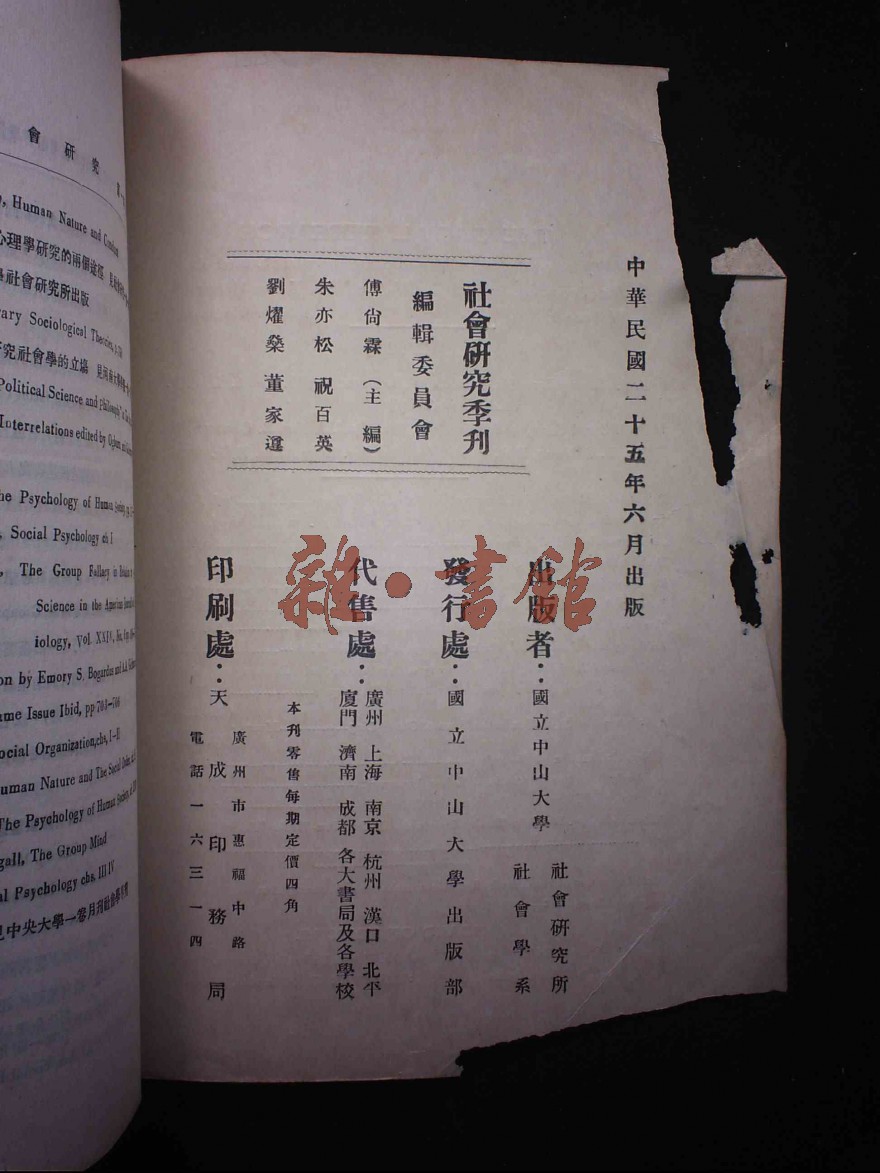 中華民國二十五年六月出版
社會研究季刊
編輯委員會
傅尙霖(主編)
朱亦松 祝百英
劉燿燊 董家遵
出版者:國立中山大學 社會研究所
社會學系
發行處:國立中山大學出版部
代售處:廣州 上海 南京 杭州 漢口 北平
廈門 濟南 成都 各大書局及各學校
本刊零售每期定價四角
印刷處:天成印務局
廣州市惠福中路
電話一六三一四
雜·書館
會研究
Human Nature and
心理學研究的兩個途徑
社會研究所出版
ary Sociological Theories,
究社會學的立場
Political Science and Philosophy
Interrelations edited by Ogburn
he Psychology of Human Society,
Social Psychology ch I
The Group Fallacy in
Science in the American
iology, Vol. XXIV, No.
on by Emory S. Bogardus and
ame Issue Ibid, pp 703-706
ocial Organization, chs, I-II
uman Nature and The Social
The Psychology of Human Society,
gall, The Group Mind
al Psychology chs. III IV
見中央大學一卷月刊社會學